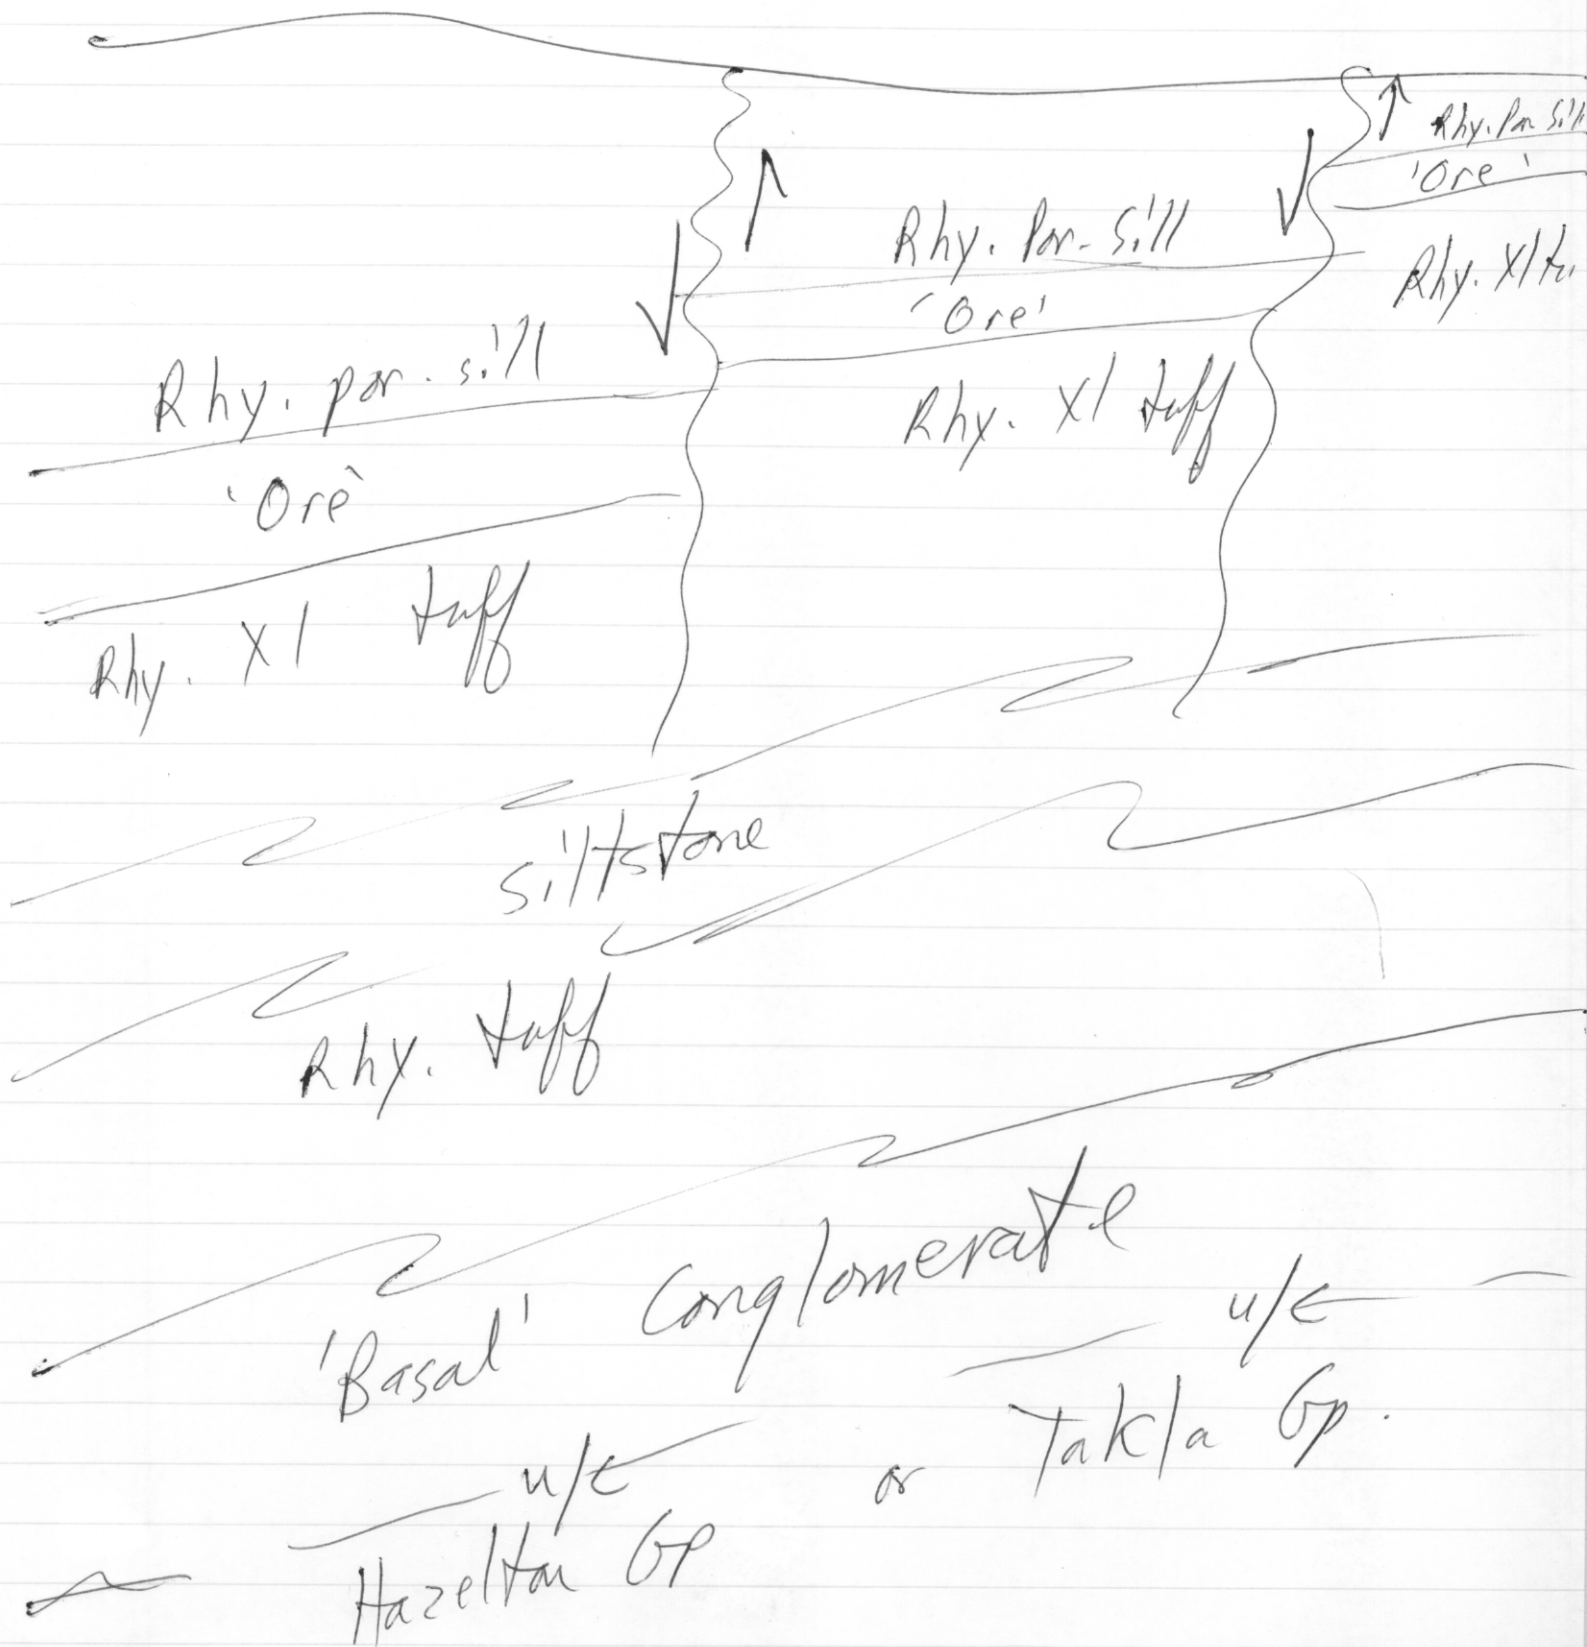 Rhy. Por Sill
'Ore'
Rhy. Por. Sill
'Ore'
Rhy. Xl tu
Rhy. por. sill
'Ore'
Rhy. Xl tuff
Rhy. Xl tuff
siltstone
Rhy. tuff
'Basal' Conglomerate
u/c
u/c
Hazelton Gp or Takla Gp.